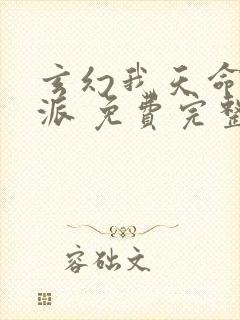 玄幻我天命
派 免費完整
容础文